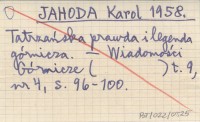 JAHODA Karol 1958.
Tatrzańska prawda i legenda
górnicza. — Wiadomości
Górnicze ( ) t. 9,
nr 4, s. 96-100.